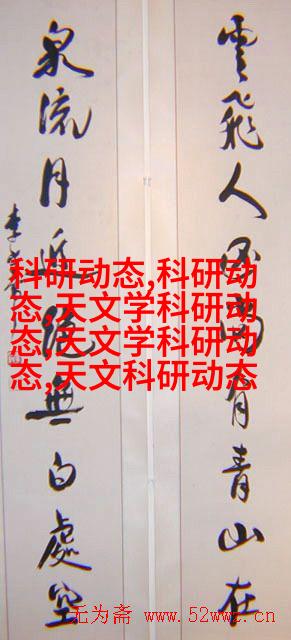 雲飛人有青山在
泉流月絕無白處空
李
科研动态,科研动
态,天文学科研动
态,天文学科研动
态,天文科研动态
无为斋 www.52wwz.cn